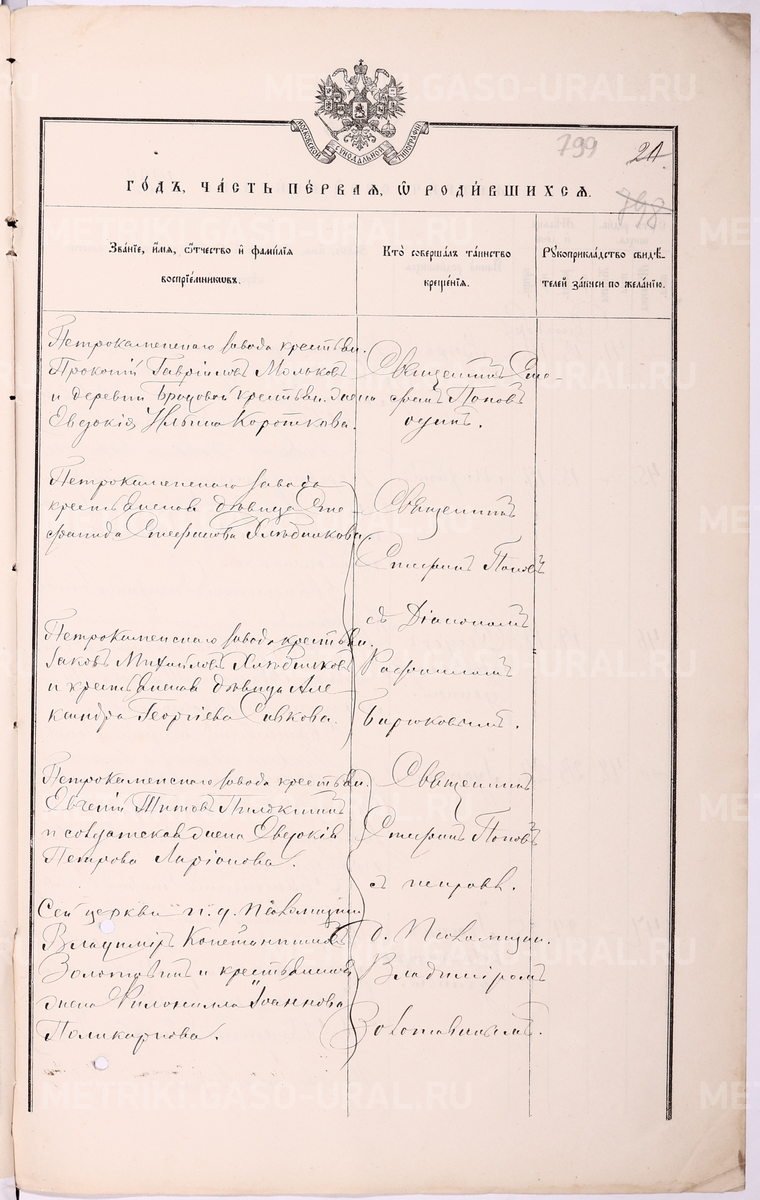 МОСКОВСКОЙ СѴНОДАЛЬНОЙ ТИПОГРАФІИ
799
21.
798
ГО́ДЪ, ЧА́СТЬ ПЕ́РВАЯ, Ѡ҆ РОДИ́ВШИХСЯ.
Зва́нїе, и҆́мя, ѻ҆́тчество и҆ фами́лїя
воспрїе́мникѡвъ.
Кто̀ соверша́лъ та́инство
креще́нїя.
Рꙋкоприкла́дство свидѣ́-
телей за́писи по жела́нїю.
Петрокаменскаго завода крестьян.
Прокопій Гавріиловъ Мальковъ
и деревни Бродовой крестьян. жена
Евдокія Ильина Короткова.
Священникъ Сте-
фанъ Поповъ
одинъ.
Петрокаменскаго завода
крестьянская дѣвица Сте-
фанида Стефанова Хлѣбникова.
Священникъ
Стефанъ Поповъ
съ Діакономъ
Петрокаменскаго завода крестьян.
Іаковъ Михайловъ Хлѣбниковъ
и крестьянская дѣвица Але
ксандра Георгіева Сивкова.
Бирюковымъ.
Петрокаменскаго завода крестьян.
Евгеній Титовъ
и солдатская жена Евдокія
Петрова Ларіонова.
Священникъ
Стефанъ Поповъ
съ
Сей церкви и. д. Псаломщик.
Владиміръ Константиновъ
Золотавинъ и крестьянская
жена Филонилла Іоаннова
Поликарпова.
д. Псаломщик.
Владиміромъ
Золотавинымъ.
METRIKI.GASO-URAL.RU